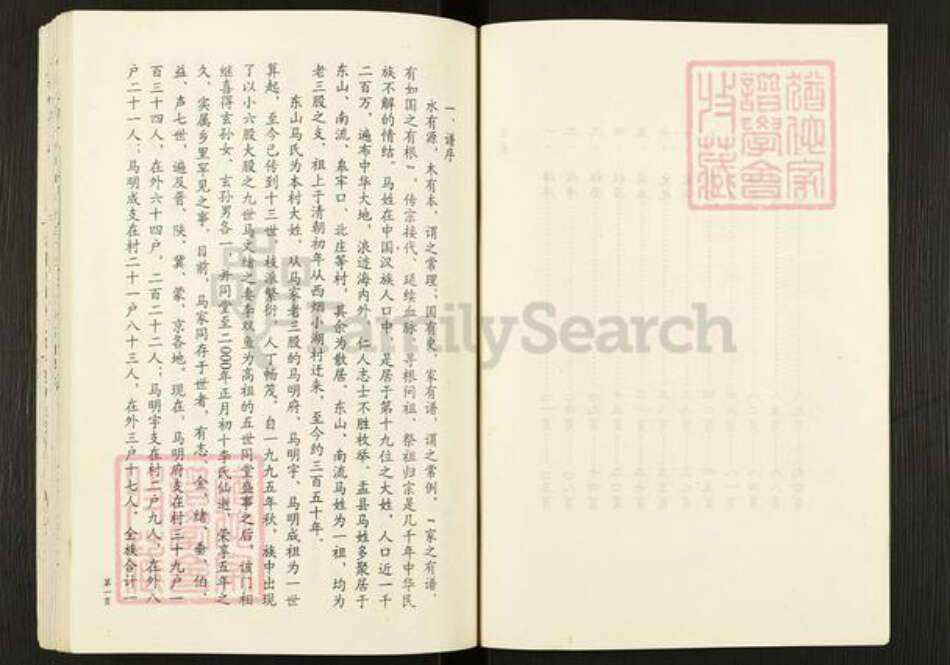 一、谱序
水有源，木有本，谓之常理；国有史，家有谱，谓之常例。“家之有谱，
有如国之有根”，传宗接代，延续血脉，寻根问祖，祭祖归宗是几千年中华民
族不解的情结。马姓在中国汉族人口中，是居于第十九位之大姓，人口近一千
二百万，遍布中华大地，浪迹海内外，仁人志士不胜枚举。盂县马姓多聚居于
东山、南流、牢口、北庄等村，其余为散居。东山、南流马姓为一祖，均为
老三股之支，祖上于清朝初年从西烟小湖村迁来，至今约三百五十年。
东山马氏为本村大姓，从马家老三股的马明府、马明宇、马明成祖为一世
算起，至今已传到十三世，枝派繁衍，人丁畅茂。自一九九五年秋，族中出现
了以小六股大股之九世马文绪之妻李双鱼为高祖的五世同堂盛事之后，该门相
继喜得玄孙女、玄孙男各一，并同堂至二000年正月初十李氏仙逝，荣享五年之
久，实属乡里罕见之事。目前，马家同存于世者，有志、金、绪、垂、伯、
益、声七世，遍及晋、陕、冀、蒙、京各地。现在，马明府支在村三十九户一
百三十四人，在外六十四户，二百二十二人；马明宇支在村二户九人，在外八
户二十一人；马明成支在村二十一户八十三人，在外三户十七人，全族合计一
第一页
FamilySearch
犹他家
谱学会
收藏